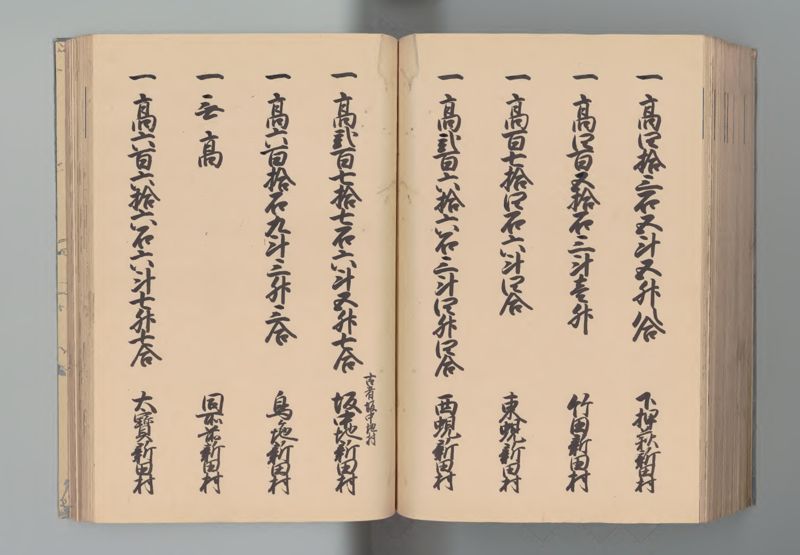 一 高四拾三石五斗五升八合 下押萩新田村
一 高四百五拾石三斗壱升 竹田新田村
一 高百七拾四石六斗四合 東蜆新田村
一 高弐百六拾六石三斗四升四合 西蜆新田村
古者坂中地村
一 高弐百七拾七石六斗五升七合 坂中地新田村
一 高六百拾石九斗三升三合 鳥池新田村
一 無高 同所前新田村
一 高六百六拾六石六斗七升七合 大寳新田村